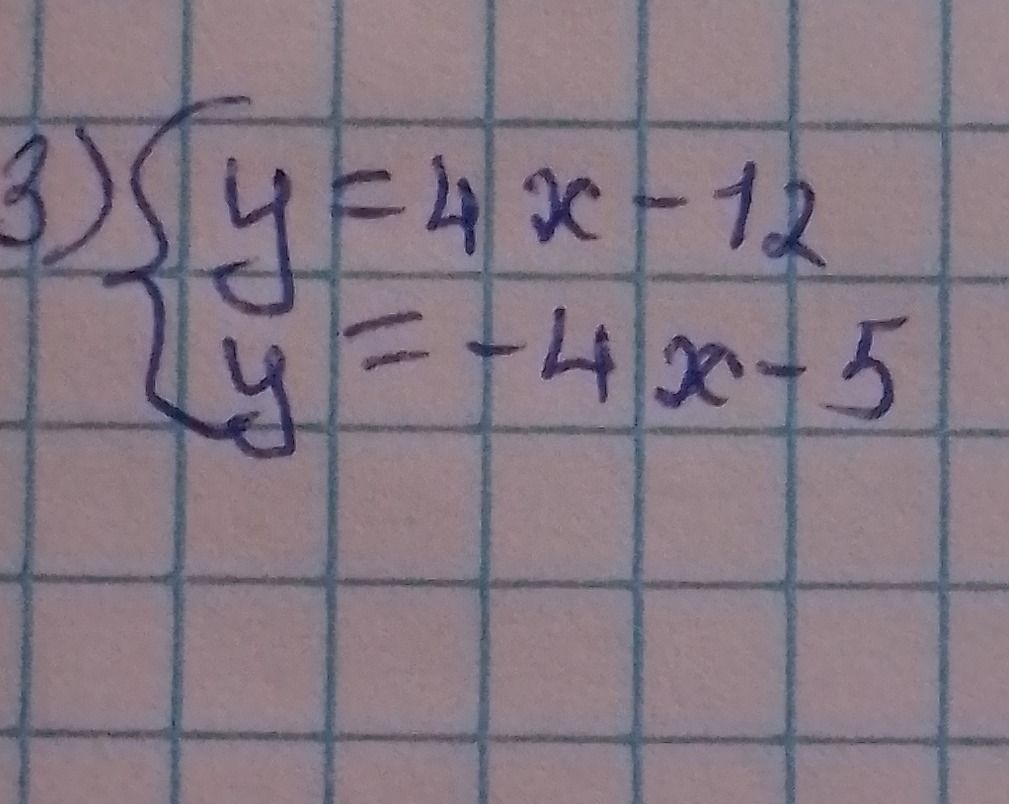 3) { y = 4x - 12
y = -4x - 5